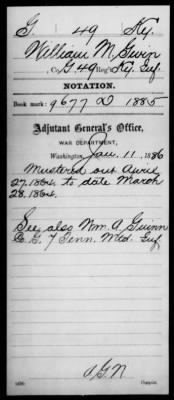 G. 49 Ky.
William M. Gwin
, Co. G. 49 Reg't Ky. Inf.
NOTATION.
Book mark: 9677 D 1885
Adjutant General's Office,
WAR DEPARTMENT,
Washington, Jan. 11, 1886
Mustered out April
27.1864. to date March
28.1864.
See also Wm. A. Guinn
Co. G. 7 Tenn. Mtd. Inf.
Copyist.